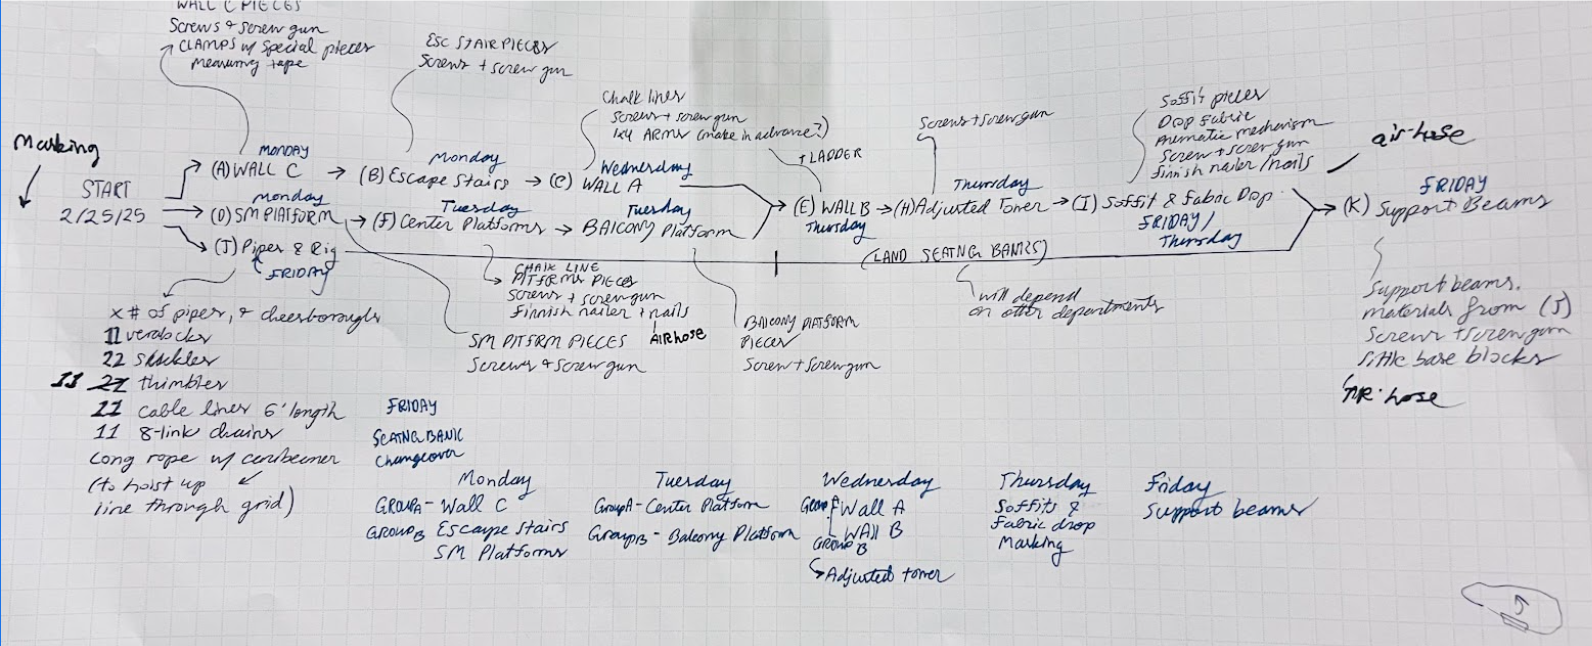 WALL C PIECES
Screws & screw gun
CLAMPS w/ special pieces
measuring tape
ESC STAIR PIECES
Screws + screw gun
Chalk lines
Screws + screw gun
1x4 ARMS (make in advance?)
+ LADDER
Screws + screw gun
Soffit pieces
Drop Fabric
Pneumatic mechanism
Screw + screw gun
finnish nailer / nails
air-hose
Marking
START
2/25/25
MONDAY
(A) WALL C
Monday
(B) Escape Stairs
Wednesday
(C) WALL A
monday
(D) SM PLATFORM
Tuesday
(F) Center Platforms
Tuesday
BAlCONY Platform
(E) WALL B
Thursday
Thursday
(H) Adjusted Tower
(I) Soffit & Fabric Drop
FRIDAY /
Thursday
FRIDAY
(K) Support Beams
(J) Pipes & Rig
FRIDAY
(LAND SEATING BANKS)
will depend
on other departments
CHALK LINE
PLTFRMS PIECES
Screws + screw gun
Finnish nailer + nails
AIRhose
SM PLTFRM PIECES
Screws & screw gun
BAlCONY PLATFORM
PIECES
Screw + screw gun
Support beams.
materials from (J)
Screws + screw gun
little base blocks
AIR-hose
x # of pipes, & cheesboroughs
11 verlocks
22 shackles
11 thimbles
11 cable lines 6' length
11 8-link chains
Long rope w/ carabeener
(to hoist up
line through grid)
FRIDAY
SEATNG BANK
Changeover
Monday
GROUPA - Wall C
GROUPB Escape Stairs
SM Platforms
Tuesday
GroupA - Center Platform
GroupB - Balcony Platform
Wednesday
Wall A
WAll B
GROUP B
Adjusted tower
Thursday
Soffits &
Fabric drop
Marking
Friday
Support beams